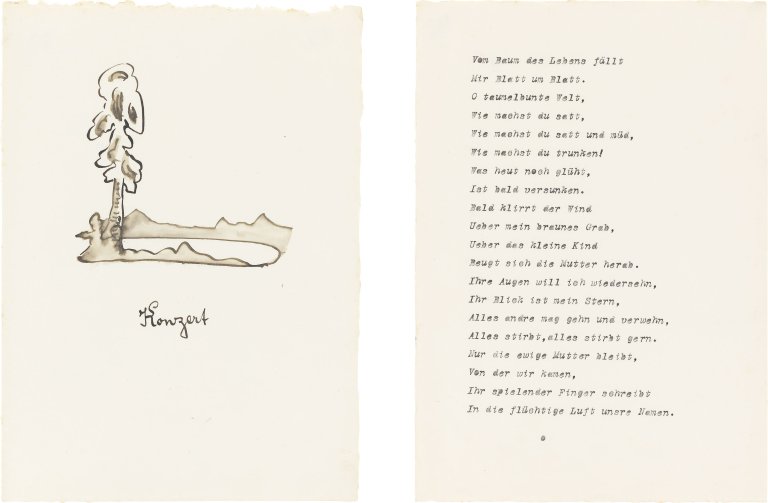 Konzert
Vom Baum des Lebens fällt
Mir Blatt um Blatt.
O taumelbunte Welt,
Wie machst du satt,
Wie machst du satt und müd,
Wie machst du trunken!
Was heut noch glüht,
Ist bald versunken.
Bald klirrt der Wind
Ueber mein braunes Grab,
Ueber das kleine Kind
Beugt sich die Mutter herab.
Ihre Augen will ich wiedersehn,
Ihr Blick ist mein Stern,
Alles andre mag gehn und verwehn,
Alles stirbt,alles stirbt gern.
Nur die ewige Mutter bleibt,
Von der wir kamen,
Ihr spielender Finger schreibt
In die flüchtige Luft unsre Namen.